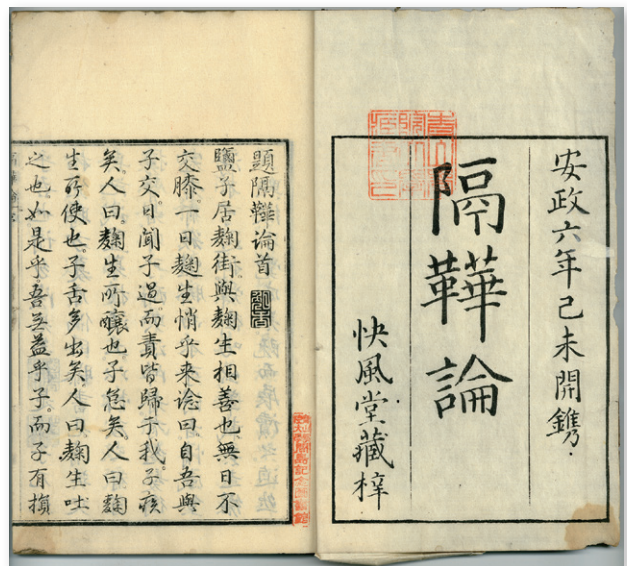 安政六年己未開鐫
隔鞾論
快風堂藏梓
題隔鞾論首
鹽子居麹街與麹生相善也無日不
交膝一日麹生悄乎来諗曰自吾與
子交日聞子過而責皆歸于我子疾
矣人曰麹生所釀也子怠矣人曰麹
生所使也子舌多出矣人曰麹生吐
之也如是乎吾无益乎子而子有損